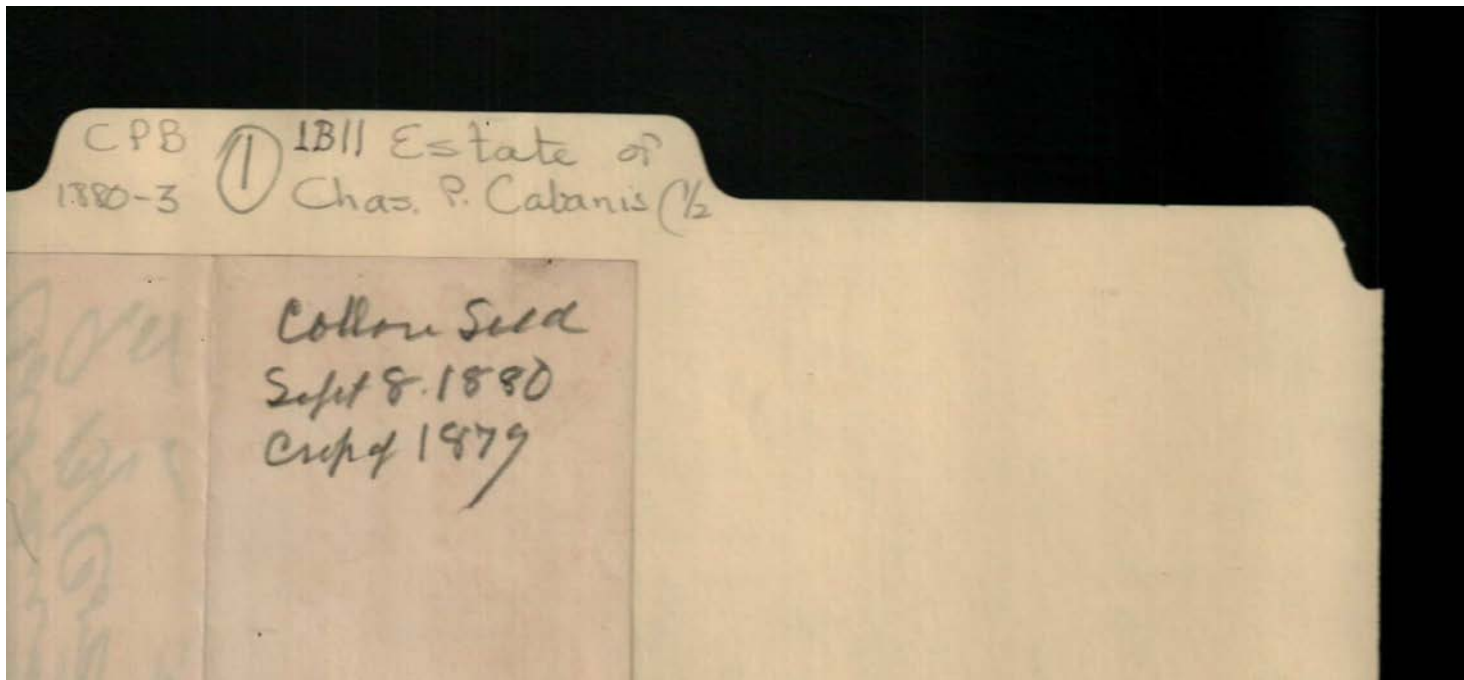 CPB ① 1B11 Estate of
1880-3 Chas. P. Cabanis (1/2
Cotton Seed
Sept 8. 1880
Crop of 1879